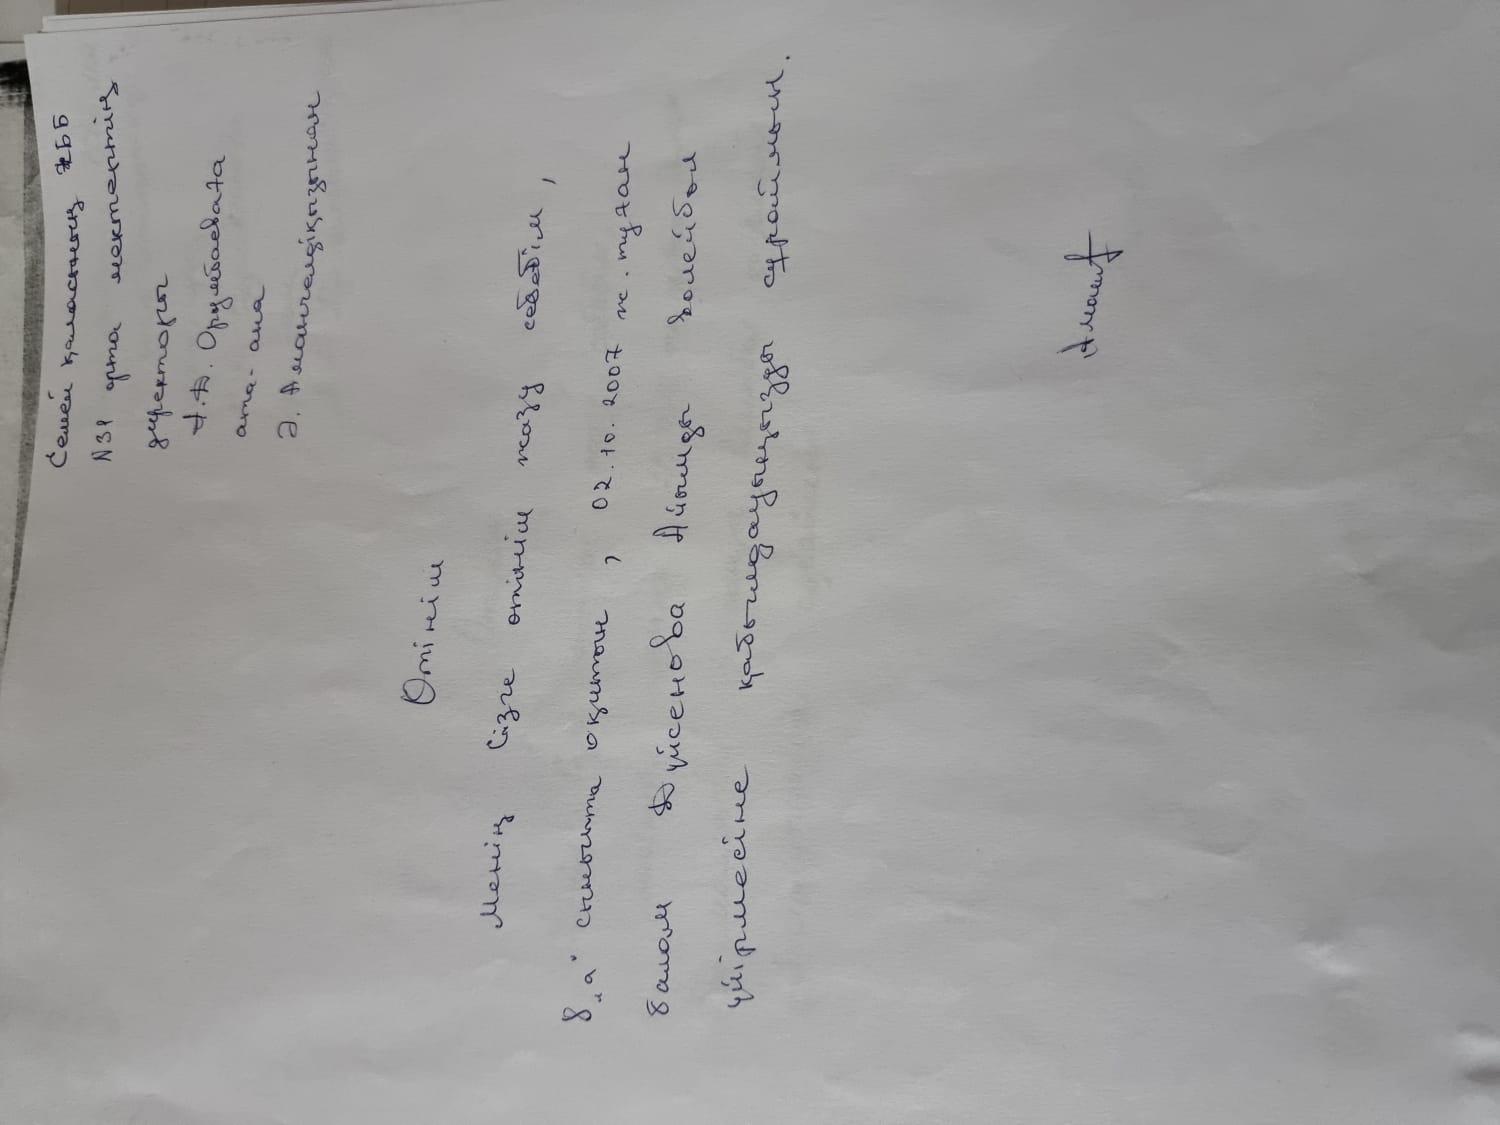 Семей қаласының ЖББ
N31 орта мектептің
директоры
А.Д. Орумбаевата
ата-ана
Ә. Амангелдіқызынан
Өтініш
Менің Сізге өтініш жазу себебім,
8 "а" сыныпта оқитын, 02.10.2007 ж. туған
балам Дүйсенова Айымды волейбол
үйірмесіне қабылдауыңызды сұраймын.